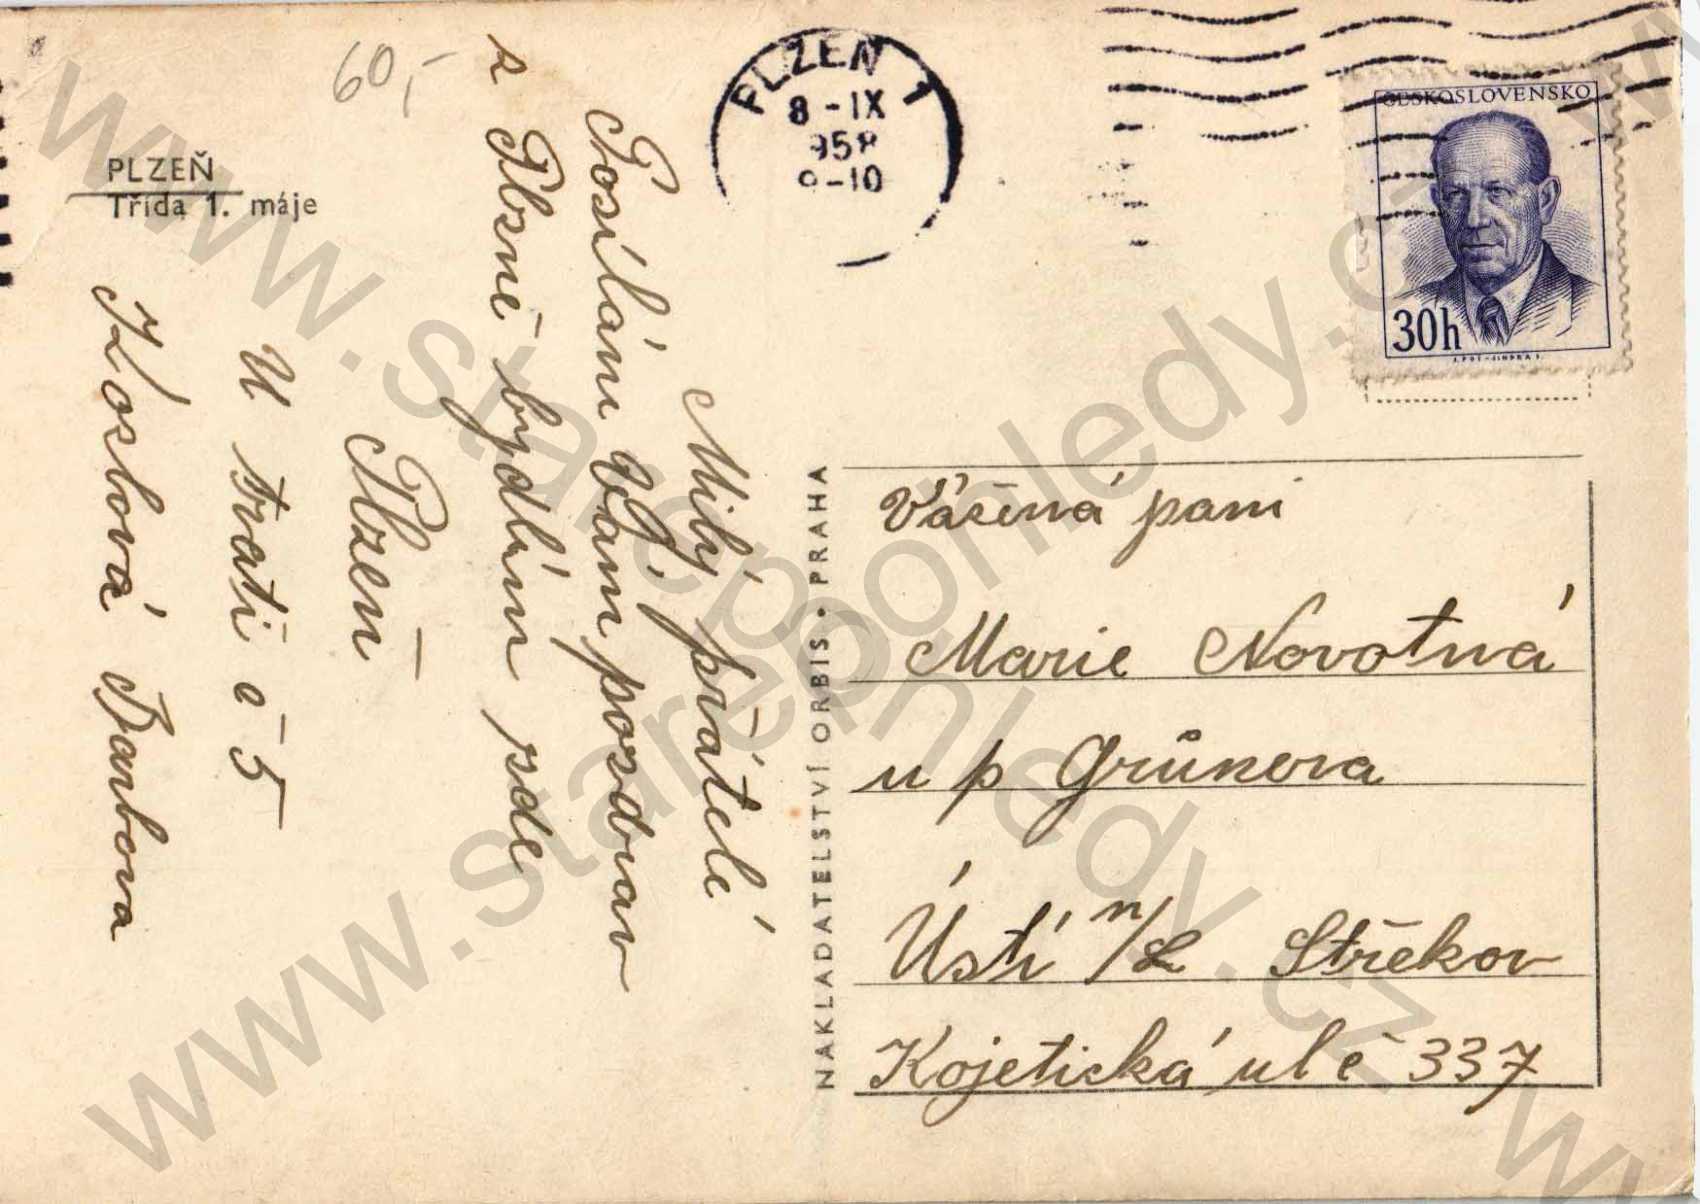 60,-
PLZEŇ
Třída 1. máje
Milý přátelé
Posílám Vám pozdrav
z Plzně bydlím zde
Plzeň
U trati č 5
Koslová Barbora
PLZEŇ 1
8 -IX
958
9-10
ČESKOSLOVENSKO
30h
NAKLADATELSTVÍ ORBIS • PRAHA
Vážená paní
Marie Novotná
u p Grůnera
Ústí n/L Střekov
Kojetická ul č 337
www.starepohledy.cz
www.starepohledy.cz